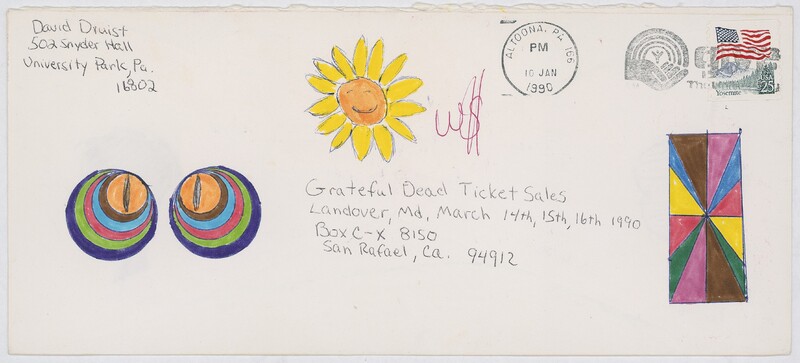 David Druist
502 Snyder Hall
University Park, Pa.
16802
ALTOONA, PA 166
PM
16 JAN
1990
USA
25
Yosemite
Grateful Dead Ticket Sales
Landover, Md, March 14th, 15th, 16th 1990
Box C-X 8150
San Rafael, Ca. 94912